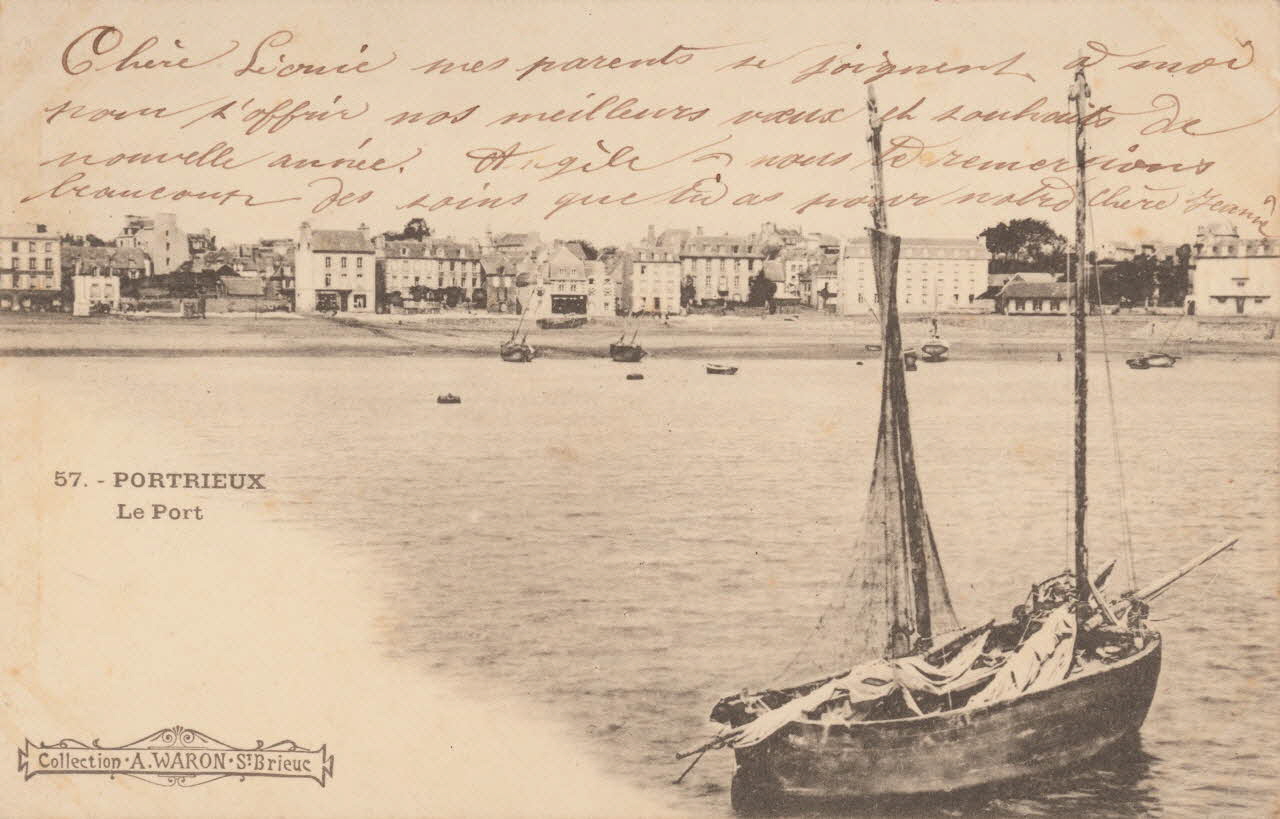 Chère Léonie mes parents se joignent à moi
pour t'offrir nos meilleurs vœux et souhaits de
nouvelle année. Angèle - nous te remercions
beaucoup des soins que tu as pour notre chère Jeanne
57. - PORTRIEUX
Le Port
Collection · A. WARON · St Brieuc